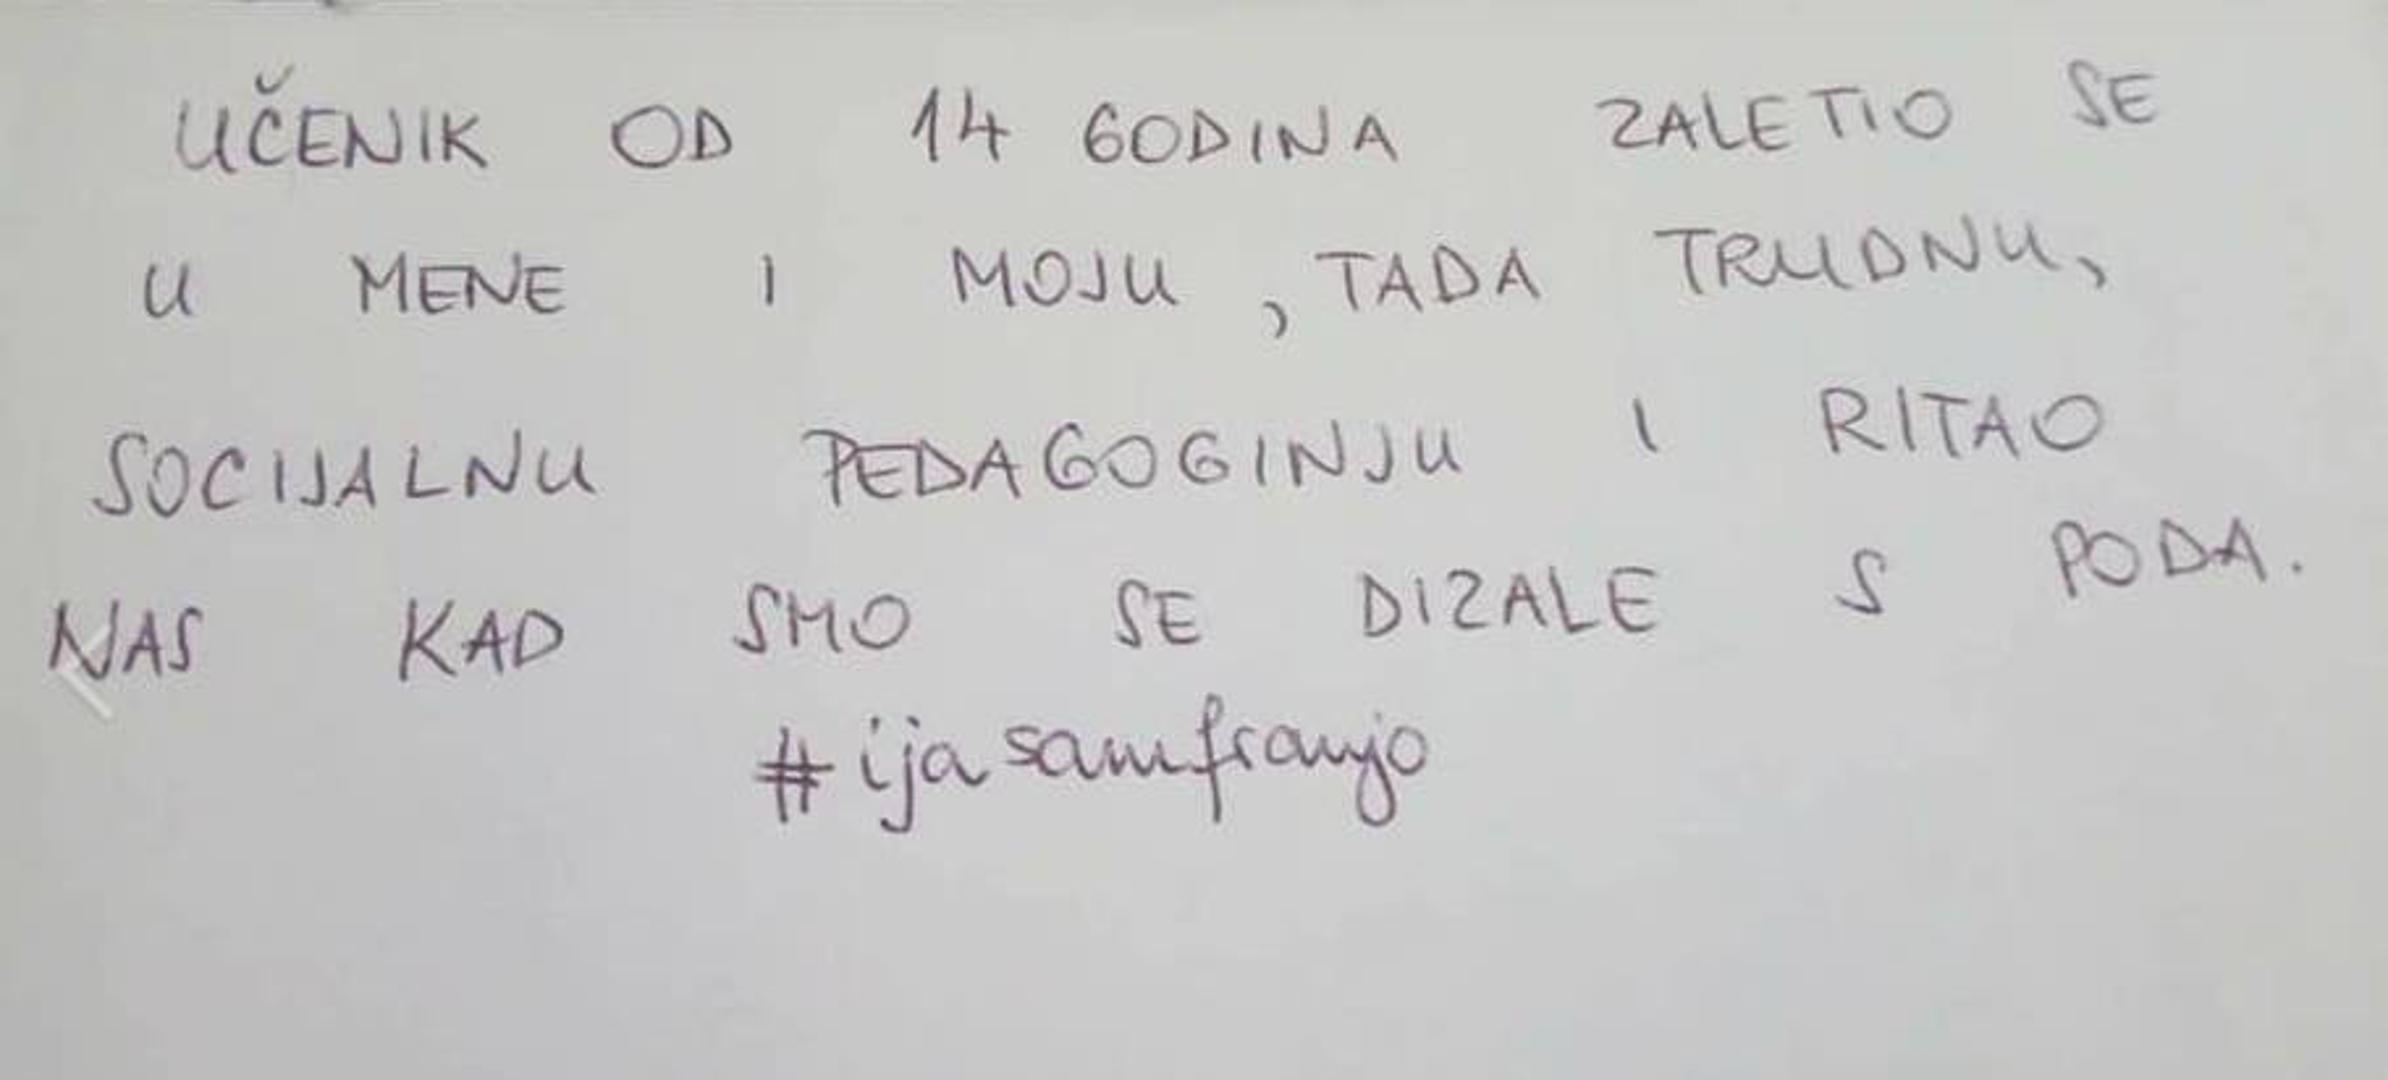 UČENIK OD 14 GODINA ZALETIO SE
U MENE I MOJU, TADA TRUDNU,
SOCIJALNU PEDAGOGINJU I RITAO
NAS KAD SMO SE DIZALE S PODA.
#ijasamfranjo